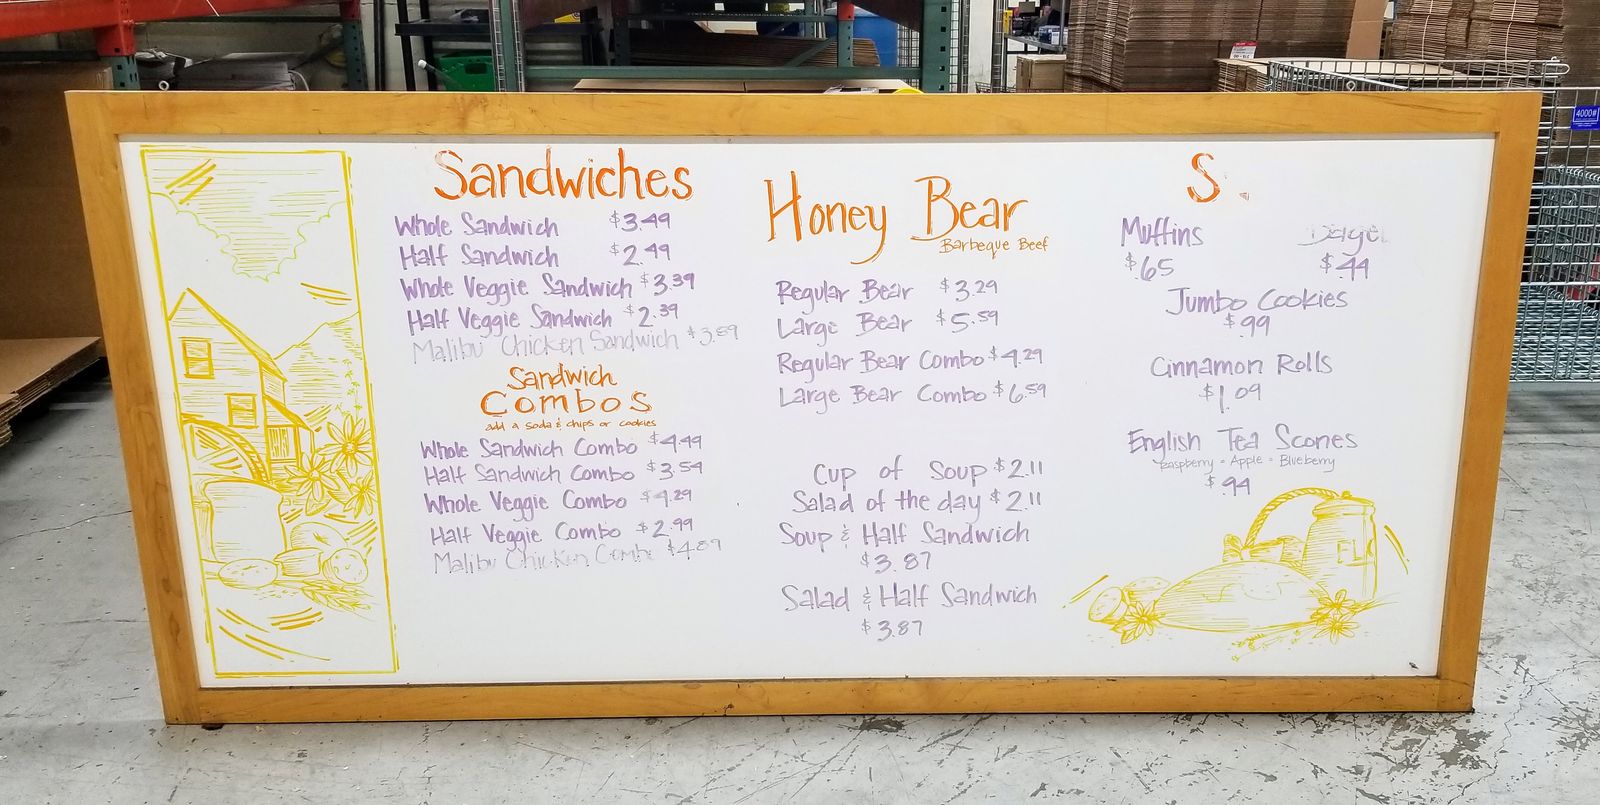 Sandwiches
Whole Sandwich $3.49
Half Sandwich $2.49
Whole Veggie Sandwich $3.39
Half Veggie Sandwich $2.39
Malibu Chicken Sandwich $3.89
Sandwich
Combos
add a soda & chips or cookies
Whole Sandwich Combo $4.49
Half Sandwich Combo $3.59
Whole Veggie Combo $4.29
Half Veggie Combo $2.99
Malibu Chicken Combo $4.89
Honey Bear
Barbeque Beef
Regular Bear $3.29
Large Bear $5.59
Regular Bear Combo $4.29
Large Bear Combo $6.59
Cup of Soup $2.11
Salad of the day $2.11
Soup & Half Sandwich
$3.87
Salad & Half Sandwich
$3.87
S
Muffins
$.65 $.44
Jumbo Cookies
$.99
Cinnamon Rolls
$1.09
English Tea Scones
Raspberry - Apple - Blueberry
$.94
4000#